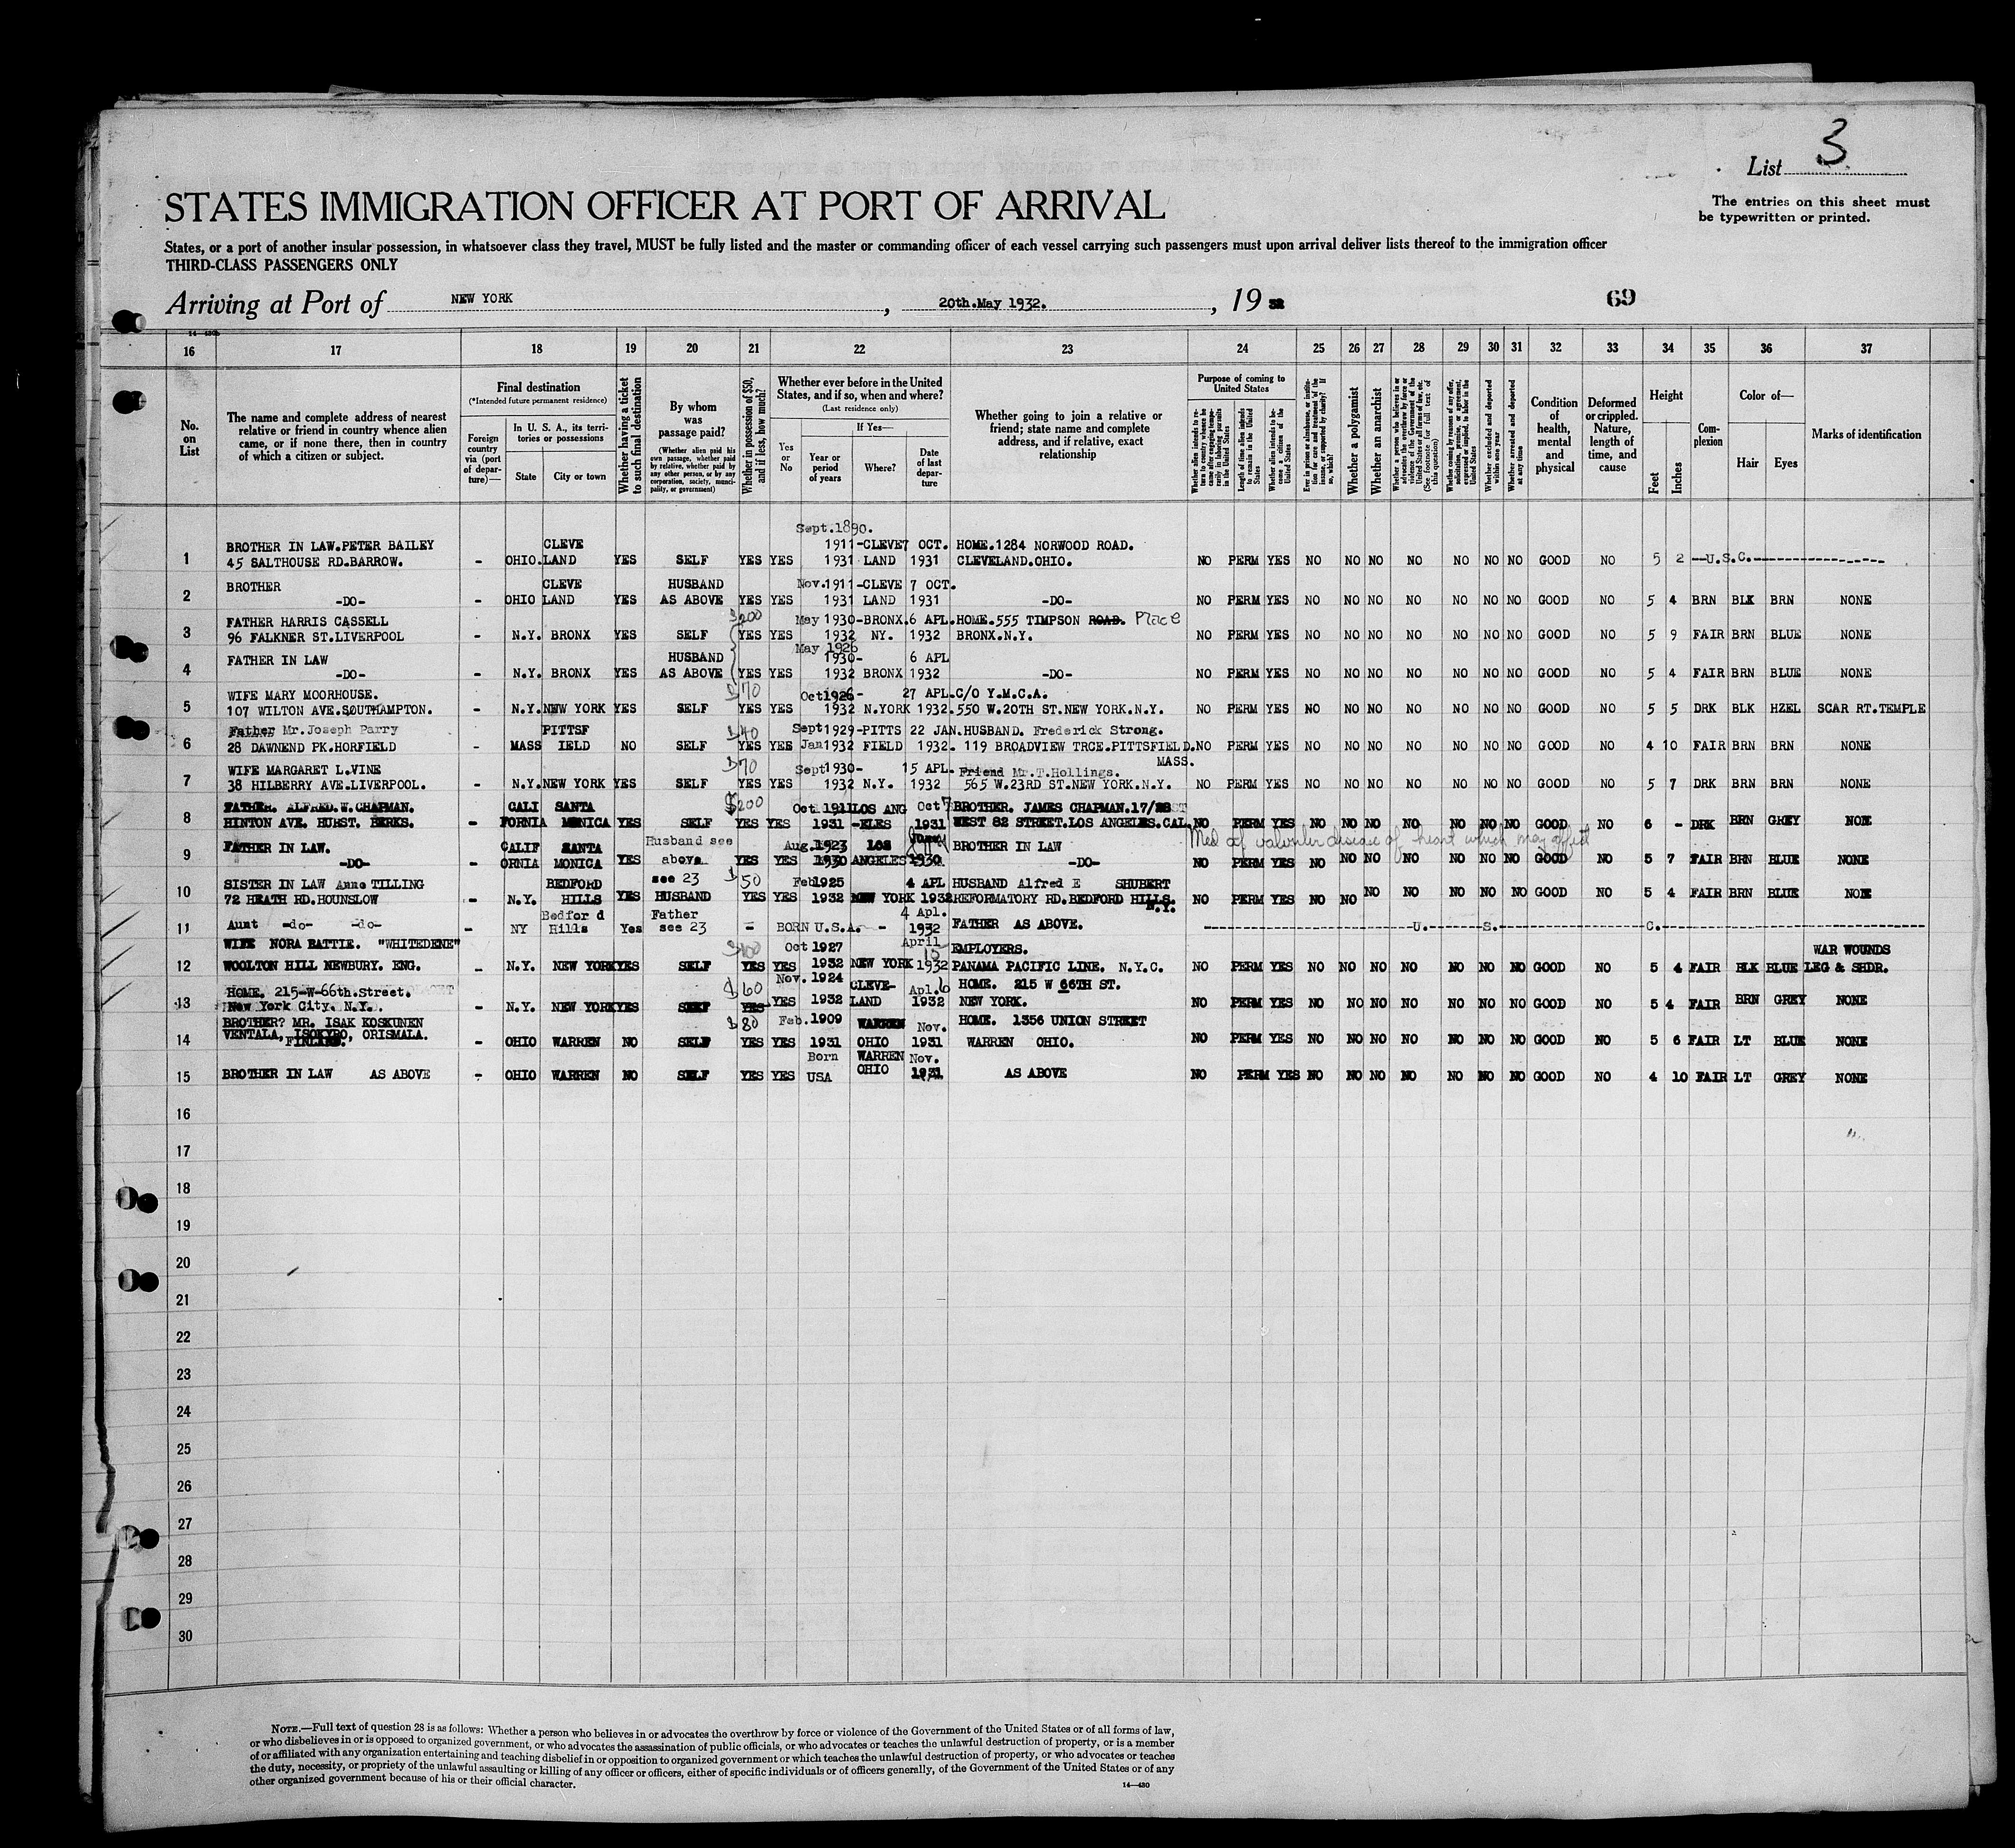 List 3
STATES IMMIGRATION OFFICER AT PORT OF ARRIVAL
The entries on this sheet must
be typewritten or printed.
States, or a port of another insular possession, in whatsoever class they travel, MUST be fully listed and the master or commanding officer of each vessel carrying such passengers must upon arrival deliver lists thereof to the immigration officer
THIRD-CLASS PASSENGERS ONLY
Arriving at Port of NEW YORK, 20th.May 1932., 19 32
69
16 17 18 19 20 21 22 23 24 25 26 27 28 29 30 31 32 33 34 35 36 37
No. on List
The name and complete address of nearest relative or friend in country whence alien came, or if none there, then in country of which a citizen or subject.
Final destination
(*Intended future permanent residence)
Foreign country via (port of departure)—
In U. S. A., its territories or possessions
State
City or town
Whether having a ticket to such final destination
By whom was passage paid?
(Whether alien paid his own passage, whether paid by relative, whether paid by any other person, or by any corporation, society, municipality, or government)
Whether in possession of $50, and if less, how much?
Whether ever before in the United States, and if so, when and where?
(Last residence only)
Yes or No
If Yes—
Year or period of years
Where?
Date of last departure
Whether going to join a relative or friend; state name and complete address, and if relative, exact relationship
Purpose of coming to United States
Whether alien intends to return to country whence he came after engaging temporarily in laboring pursuits in the United States
Length of time alien intends to remain in the United States
Whether alien intends to become a citizen of the United States
Ever in prison or almshouse, or institution for care and treatment of the insane, or supported by charity? If so, which?
Whether a polygamist
Whether an anarchist
Whether a person who believes in or advocates the overthrow by force or violence of the Government of the United States or all forms of law, etc. (See footnote for full text of this question)
Whether coming by reasons of any offer, solicitation, promise, or agreement, expressed or implied, to labor in the United States
Whether excluded and deported within one year
Whether arrested and deported at any time
Condition of health, mental and physical
Deformed or crippled. Nature, length of time, and cause
Height
Feet
Inches
Complexion
Color of—
Hair
Eyes
Marks of identification
Sept.1890.
BROTHER IN LAW.PETER BAILEY CLEVE 1911-CLEVE 7 OCT. HOME.1284 NORWOOD ROAD.
1 45 SALTHOUSE RD.BARROW. - OHIO. LAND YES SELF YES YES 1931 LAND 1931 CLEVELAND.OHIO. NO PERM YES NO NO NO NO NO NO NO GOOD NO 5 2 --U.S.C.-----------------
BROTHER CLEVE HUSBAND Nov.1911-CLEVE 7 OCT.
2 -DO- - OHIO LAND YES AS ABOVE YES YES 1931 LAND 1931 -DO- NO PERM YES NO NO NO NO NO NO NO GOOD NO 5 4 BRN BLK BRN NONE
FATHER HARRIS CASSELL $200 May 1930-BRONX. 6 APL. HOME.555 TIMPSON ROAD. Place
3 96 FALKNER ST.LIVERPOOL - N.Y. BRONX YES SELF YES YES 1932 NY. 1932 BRONX.N.Y. NO PERM YES NO NO NO NO NO NO NO GOOD NO 5 9 FAIR BRN BLUE NONE
May 1926
FATHER IN LAW HUSBAND 1930- 6 APL
4 -DO- - N.Y. BRONX YES AS ABOVE YES YES 1932 BRONX 1932 -DO- NO PERM YES NO NO NO NO NO NO NO GOOD NO 5 4 FAIR BRN BLUE NONE
WIFE MARY MOORHOUSE. $70 Oct1926- 27 APL. C/O Y.M.C.A.
5 107 WILTON AVE.SOUTHAMPTON. - N.Y. NEW YORK YES SELF YES YES 1932 N.YORK 1932. 550 W.20TH ST.NEW YORK.N.Y. NO PERM YES NO NO NO NO NO NO NO GOOD NO 5 5 DRK BLK HZEL SCAR RT.TEMPLE
Father Mr.Joseph Parry PITTSF $40 Sept1929-PITTS 22 JAN. HUSBAND. Frederick Strong.
6 28 DAWNEND PK.HORFIELD - MASS IELD NO SELF YES YES Jan1932 FIELD 1932. 119 BROADVIEW TRCE.PITTSFIELD. NO PERM YES NO NO NO NO NO NO NO GOOD NO 4 10 FAIR BRN BRN NONE
MASS.
WIFE MARGARET L.VINE $70 Sept1930- 15 APL. Friend Mr.T.Hollings.
7 38 HILBERRY AVE.LIVERPOOL. - N.Y. NEW YORK YES SELF YES YES 1932 N.Y. 1932 565 W.23RD ST.NEW YORK.N.Y. NO PERM YES NO NO NO NO NO NO NO GOOD NO 5 7 DRK BRN BRN NONE
FATHER. ALFRED.W.CHAPMAN. CALI SANTA $200 Oct 1911 LOS ANG Oct 7 BROTHER. JAMES CHAPMAN.
8 HINTON AVE. HURST. BERKS. - FORNIA MONICA YES SELF YES YES 1931 -ELES 1931 WEST 82 STREET.LOS ANGELES.CAL. NO PERM YES NO NO NO NO NO NO NO GOOD NO 6 - DRK BRN GREY NONE
Med cf valvular disease of heart which may affect
FATHER IN LAW. CALIF SANTA Husband see Aug.1923 LOS BROTHER IN LAW
9 -DO- - ORNIA MONICA YES above YES YES 1930 ANGELES 1930 -DO- NO PERM YES NO NO NO NO NO NO NO GOOD NO 5 7 FAIR BRN BLUE NONE
SISTER IN LAW Anne TILLING BEDFORD see 23 $50 Feb1925 4 APL HUSBAND Alfred E SHUBERT
10 72 HEATH RD.HOUNSLOW - N.Y. HILLS YES HUSBAND YES YES 1932 NEW YORK 1932 REFORMATORY RD.BEDFORD HILLS. N.Y. NO PERM YES NO NO NO NO NO NO NO GOOD NO 5 4 FAIR BRN BLUE NONE
Bedford Father 4 Apl.
11 Aunt -do- -do- - NY Hills Yes see 23 - BORN U.S.A. - 1932 FATHER AS ABOVE. ------U.------S.------C.------
WIFE NORA BATTIE. "WHITEDENE" $100 Oct 1927 April 10 EMPLOYERS. WAR WOUNDS
12 WOOLTON HILL NEWBURY. ENG. - N.Y. NEW YORK YES SELF YES YES 1932 NEW YORK 1932 PANAMA PACIFIC LINE. N.Y.C. NO PERM YES NO NO NO NO NO NO NO GOOD NO 5 4 FAIR BLK BLUE LEG & SHDR.
HOME. 215-W-66th.Street. $60 Nov. 1924 CLEVE- Apl.6 HOME. 215 W 66TH ST.
13 New York City. N.Y. - N.Y. NEW YORK YES SELF YES YES 1932 LAND 1932 NEW YORK. NO PERM YES NO NO NO NO NO NO NO GOOD NO 5 4 FAIR BRN GREY NONE
BROTHER? MR. ISAK KOSKUNEN $80 Feb.1909 WARREN Nov. HOME. 1356 UNION STREET
14 VENTALA, ISOKYRO, ORISMALA. FINLAND. - OHIO WARREN NO SELF YES YES 1931 OHIO 1931 WARREN OHIO. NO PERM YES NO NO NO NO NO NO NO GOOD NO 5 6 FAIR LT BLUE NONE
Born WARREN Nov.
15 BROTHER IN LAW AS ABOVE - OHIO WARREN NO SELF YES YES USA OHIO 1931 AS ABOVE NO PERM YES NO NO NO NO NO NO NO GOOD NO 4 10 FAIR LT GREY NONE
16
17
18
19
20
21
22
23
24
25
26
27
28
29
30
NOTE.—Full text of question 28 is as follows: Whether a person who believes in or advocates the overthrow by force or violence of the Government of the United States or of all forms of law,
or who disbelieves in or is opposed to organized government, or who advocates the assassination of public officials, or who advocates or teaches the unlawful destruction of property, or is a member
of or affiliated with any organization entertaining and teaching disbelief in or opposition to organized government or which teaches the unlawful destruction of property, or who advocates or teaches
the duty, necessity, or propriety of the unlawful assaulting or killing of any officer or officers, either of specific individuals or of officers generally, of the Government of the United States or of any
other organized government because of his or their official character.
14—430